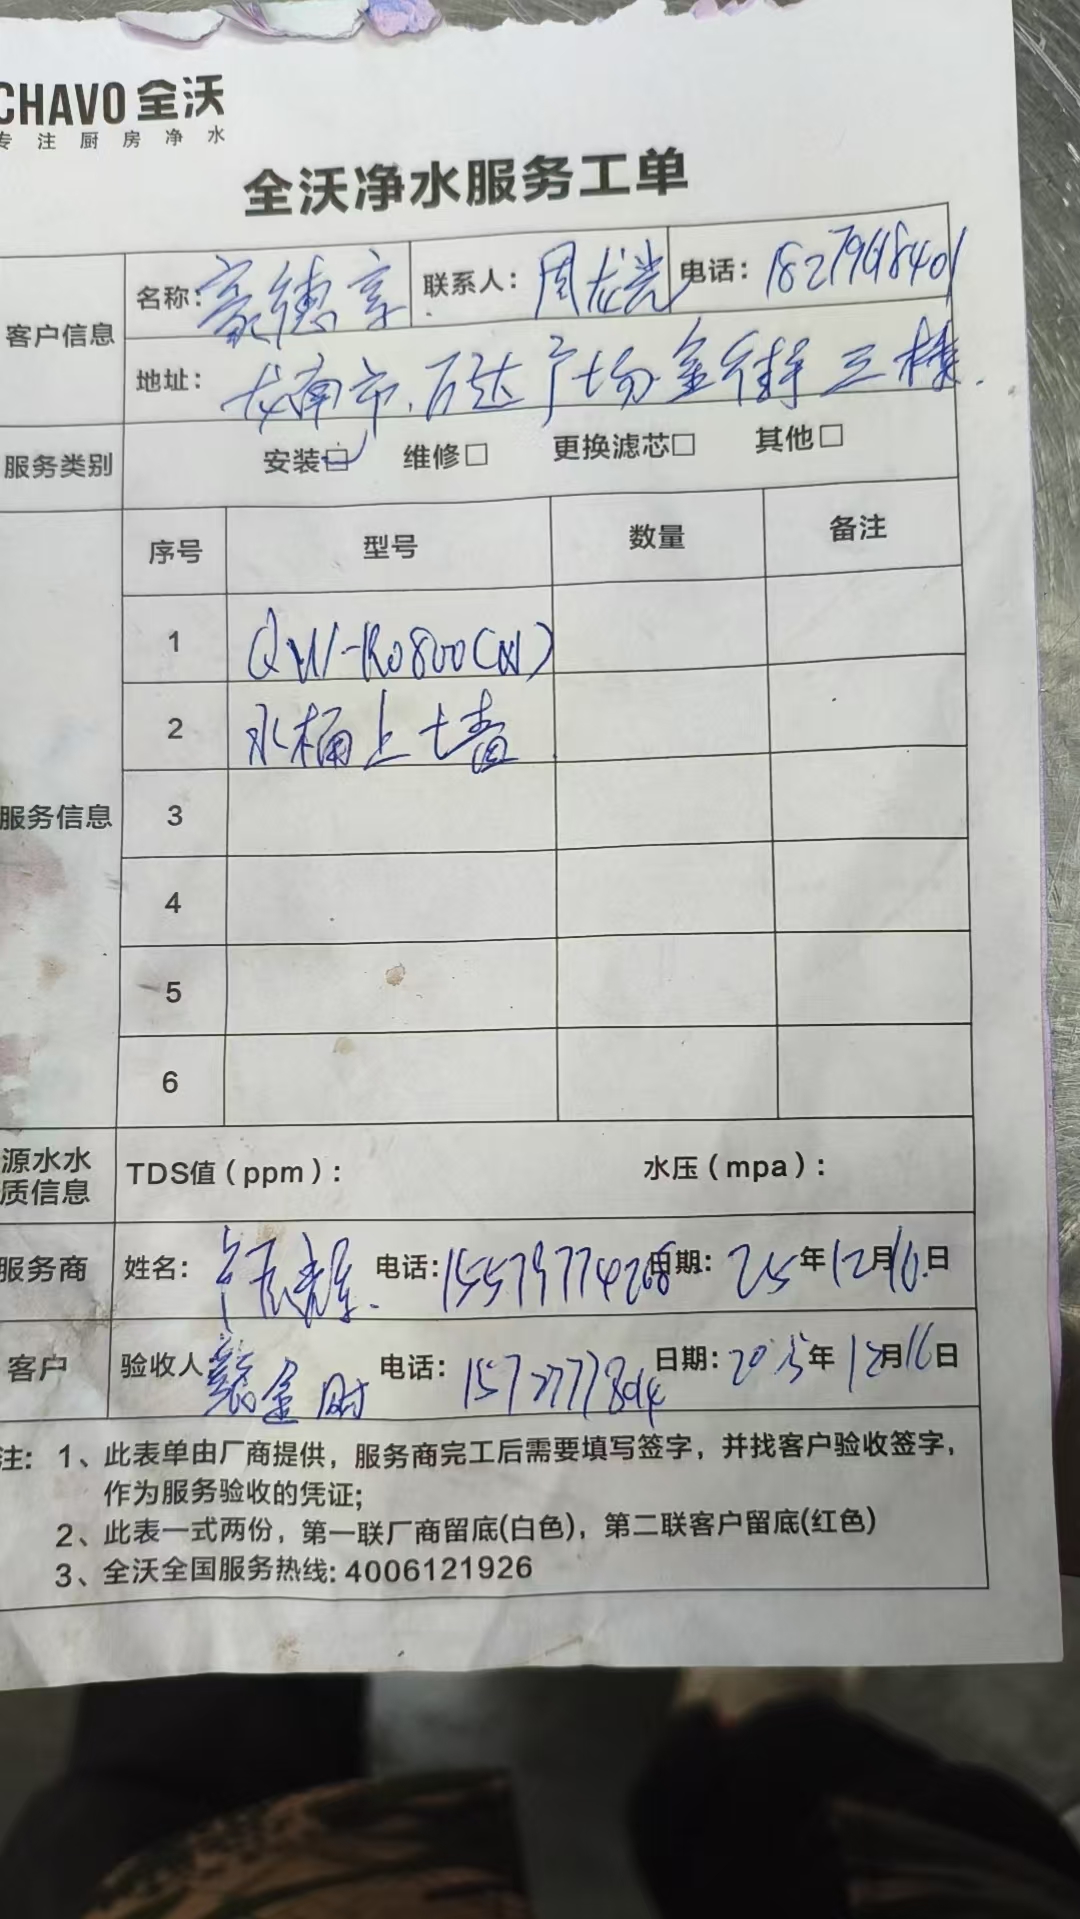 CHAVO 全沃
专注厨房净水
全沃净水服务工单
客户信息
名称：豪德亨 联系人：周龙光 电话：18279618401
地址：龙南市、万达广场金街三栋.
服务类别 安装☑ 维修□ 更换滤芯□ 其他□
服务信息
序号 型号 数量 备注
1 QW-R0800(N)
2 水桶上土墙
3
4
5
6
源水水质信息 TDS值（ppm）： 水压（mpa）：
服务商 姓名： 电话：15579774268 日期：25年12月16.日
客户 验收人： 金财 电话： 日期：2025年12月16日
注：1、此表单由厂商提供，服务商完工后需要填写签字，并找客户验收签字，
作为服务验收的凭证；
2、此表一式两份，第一联厂商留底(白色)，第二联客户留底(红色)
3、全沃全国服务热线：4006121926